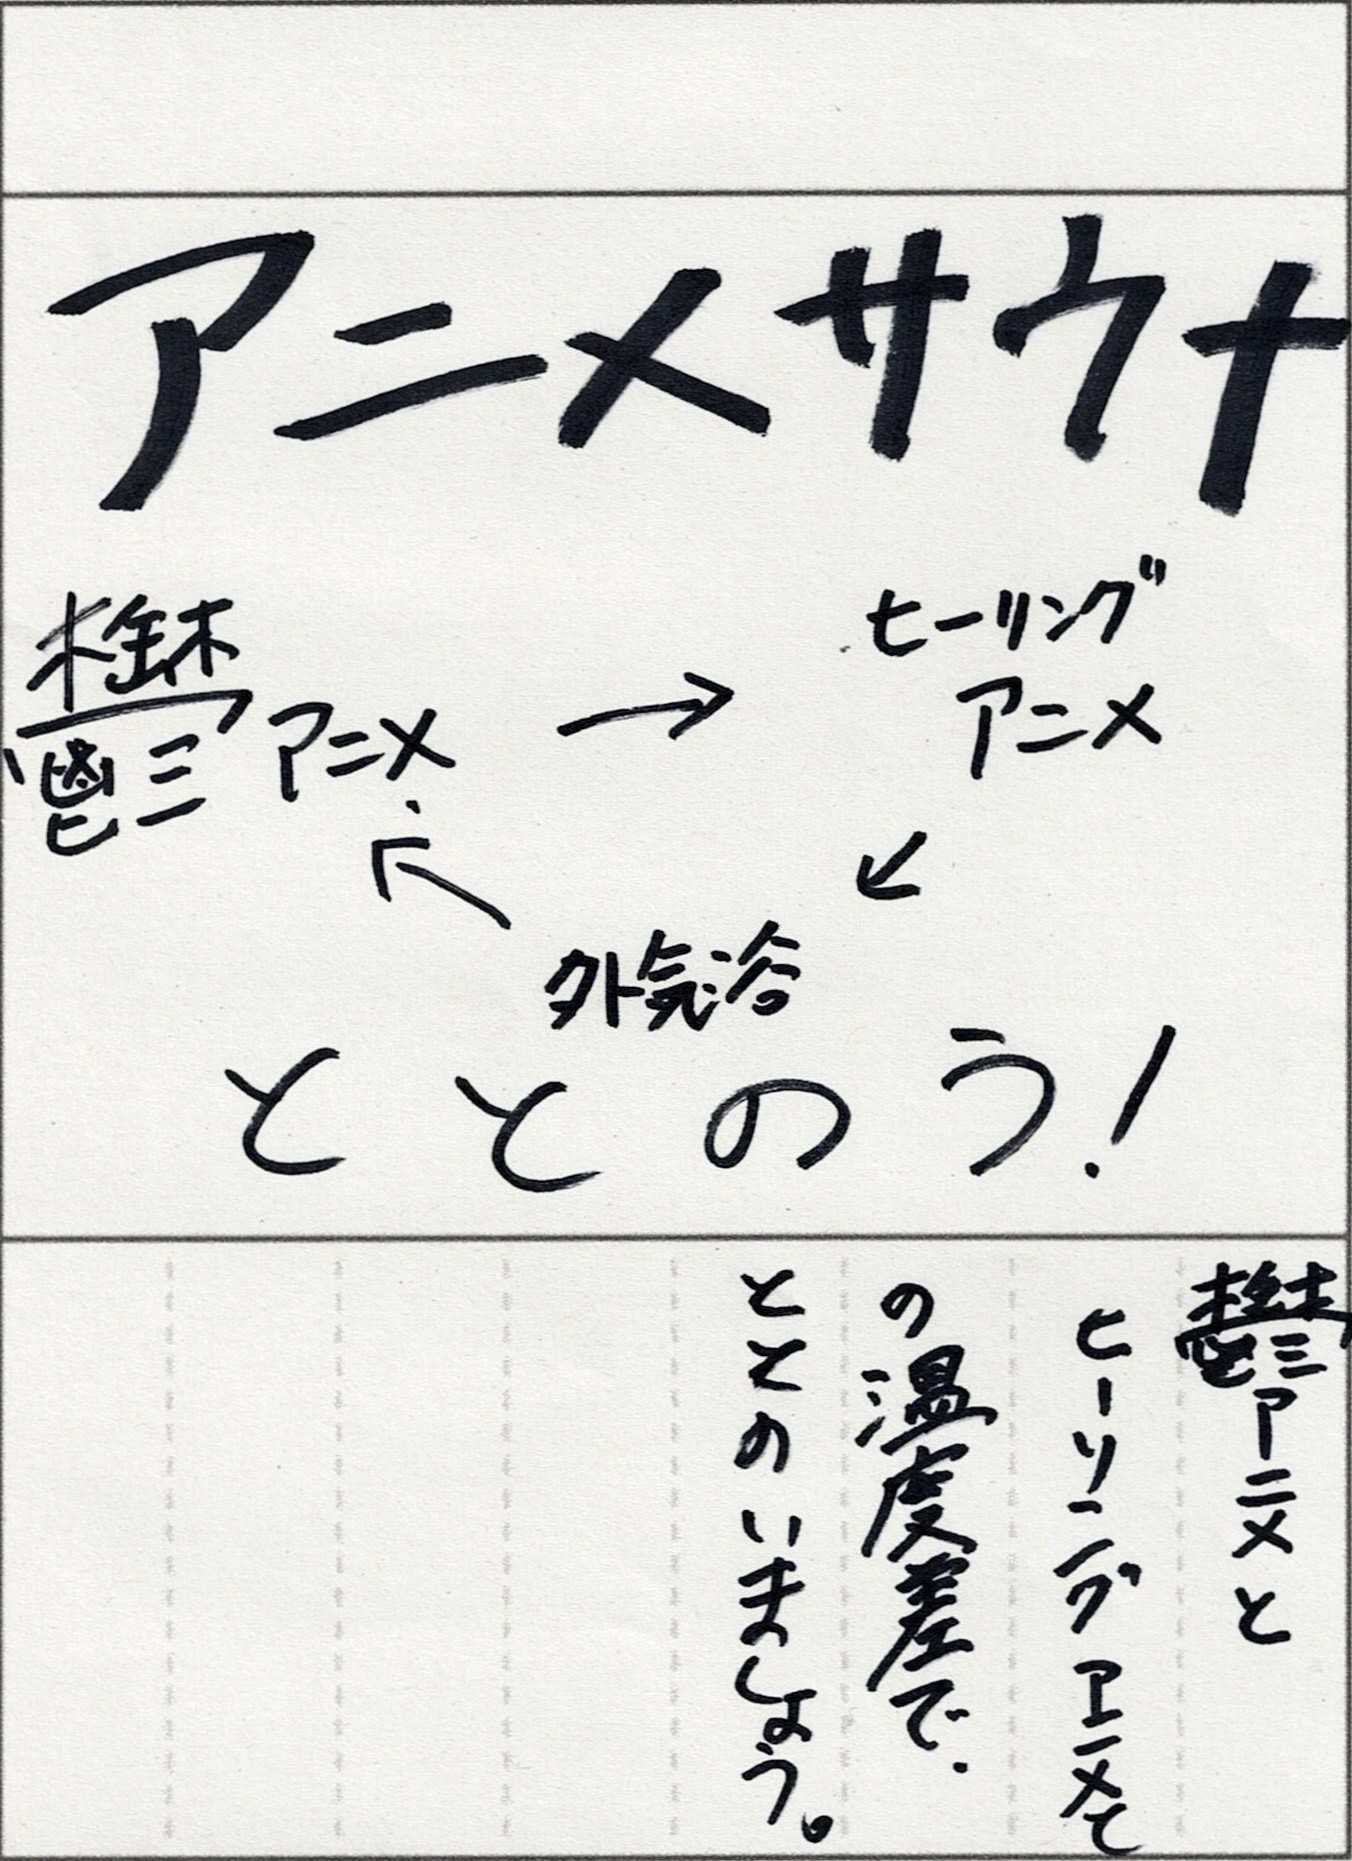 アニメサウナ
鬱アニメ → ヒーリング
アニメ
外気浴
ととのう!
鬱アニメと
ヒーリングアニメと
の温度差で、
ととのいましょう。